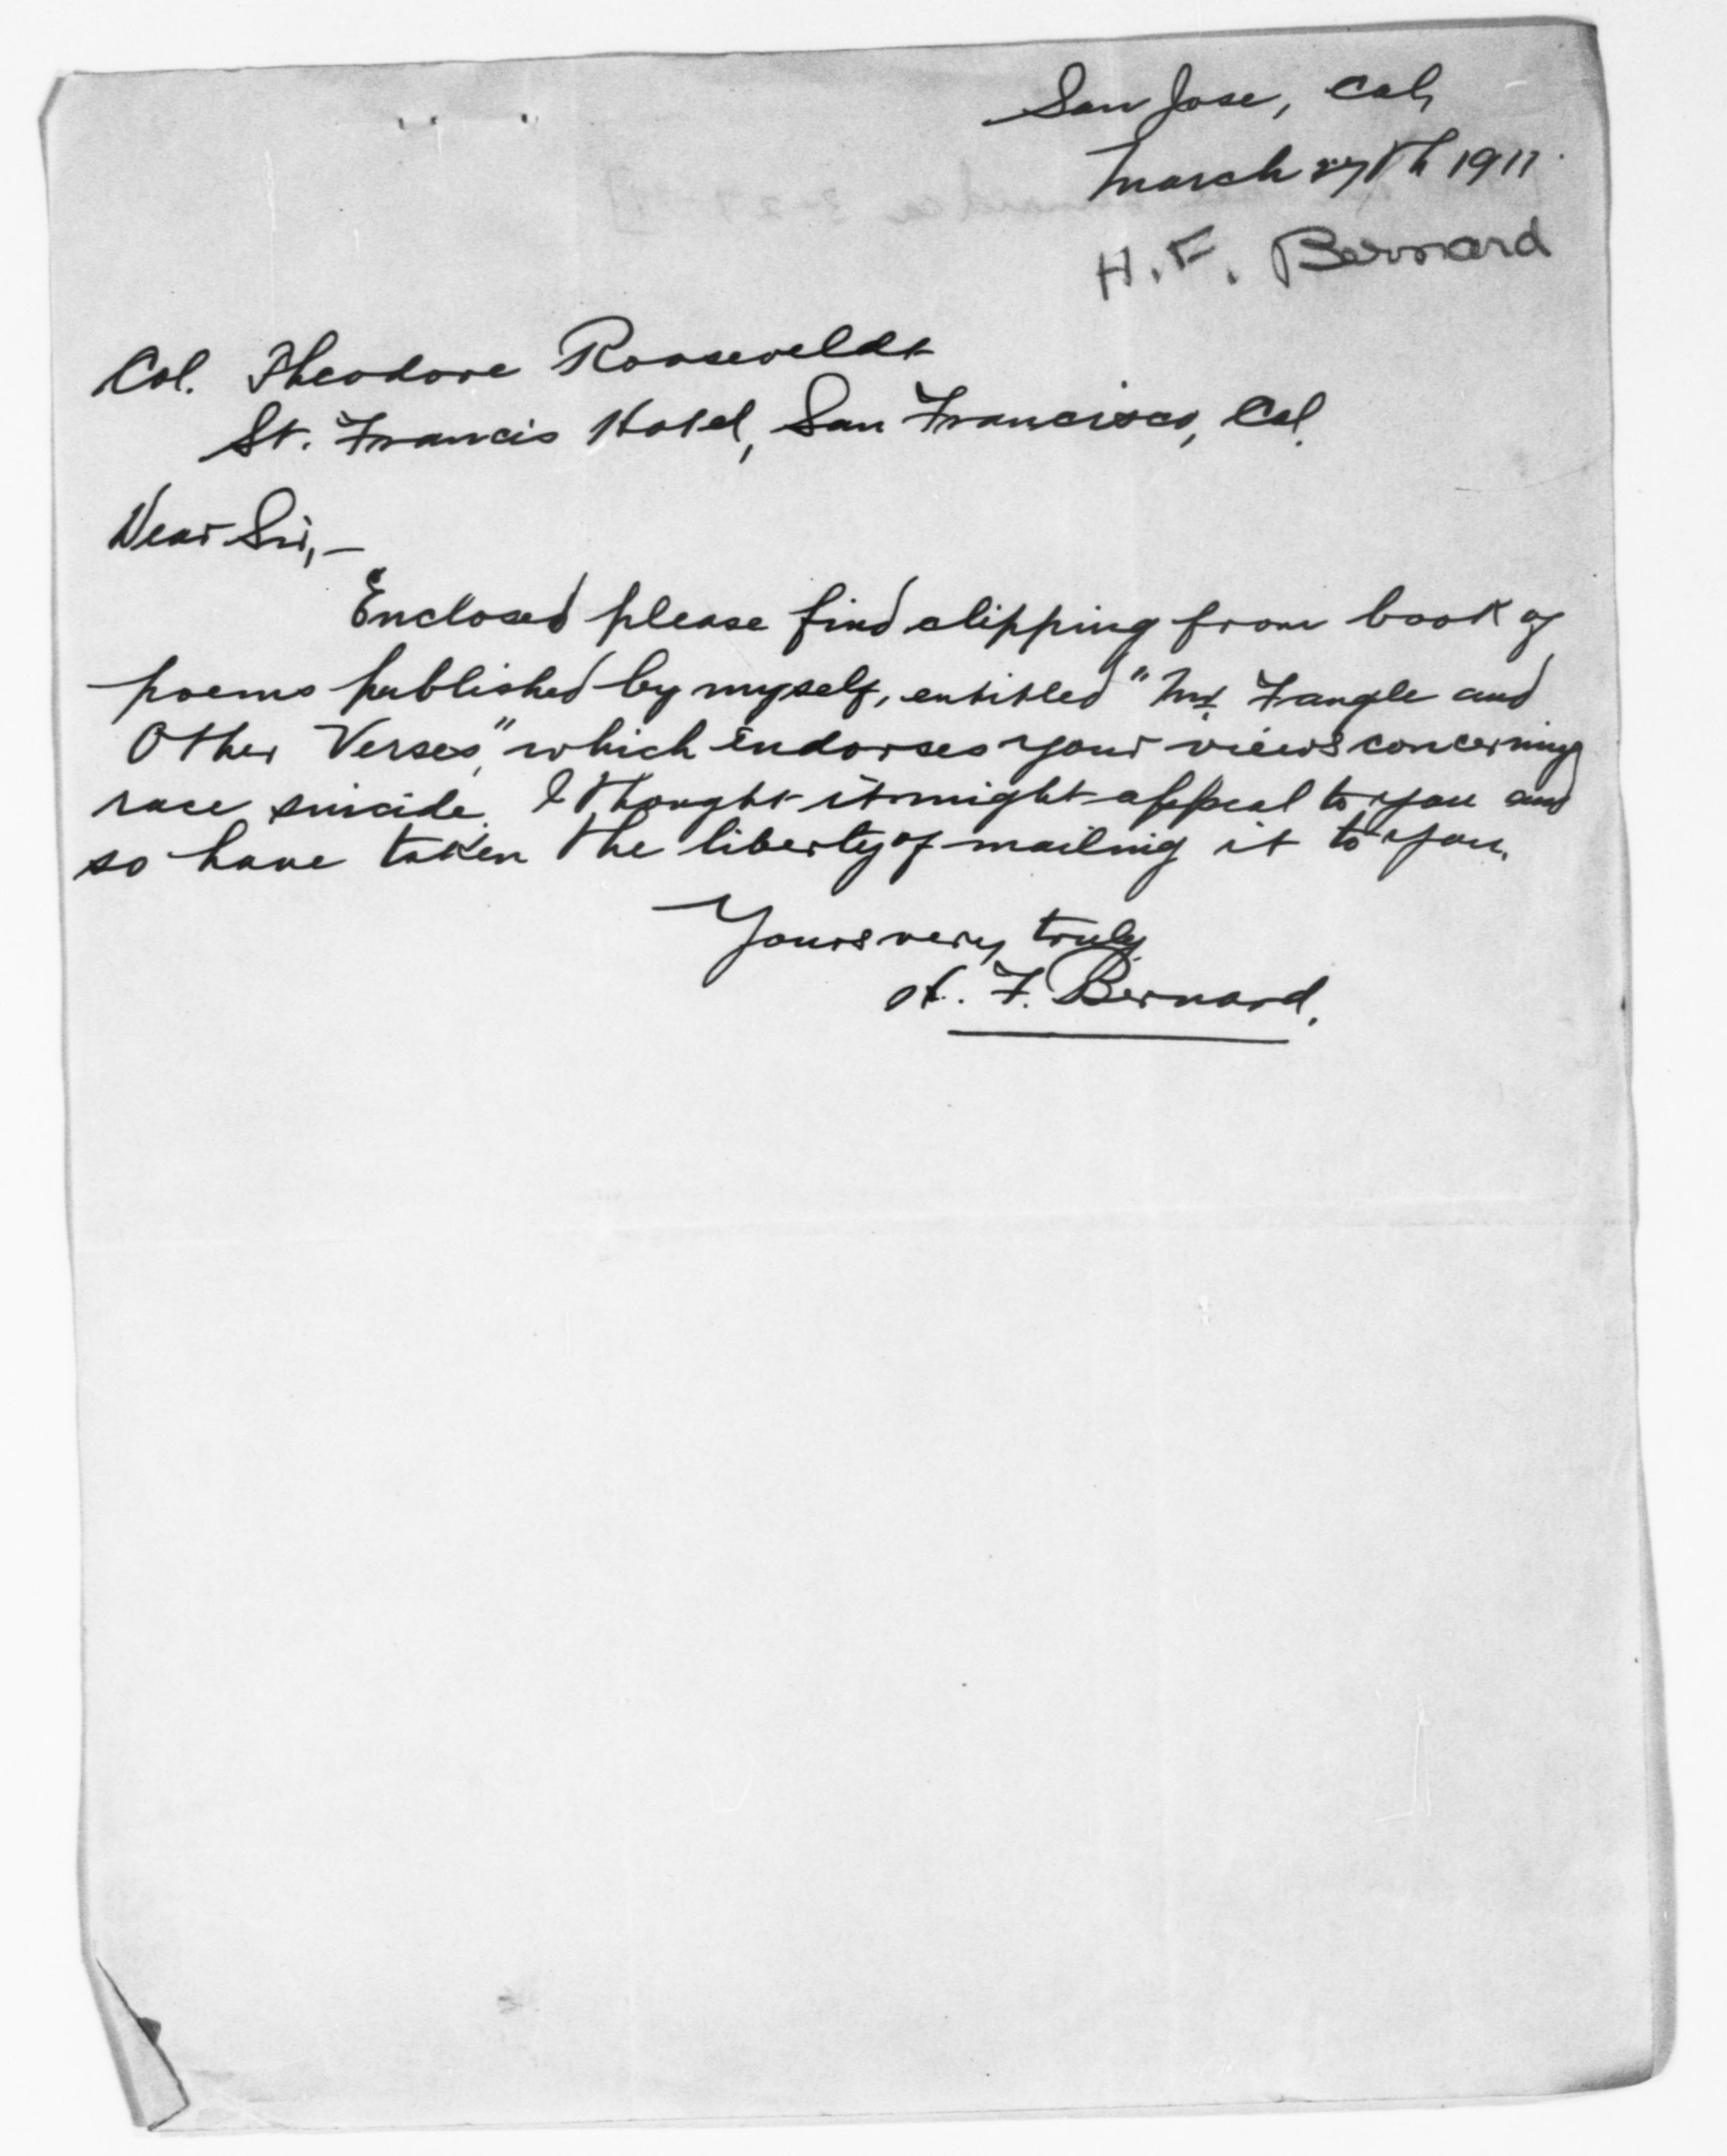 San Jose, Cal,
March 27th 1911.
H. F. Bernard
Col. Theodore Rooseveldt
St. Francis Hotel, San Francisco, Cal.
Dear Sir,—
Enclosed please find clipping from book of
poems published by myself, entitled "Mr. Fangle and
Other Verses," which endorses your views concerning
race suicide. I thought it might appeal to you and
so have taken the liberty of mailing it to you.
Yours very truly
H. F. Bernard.